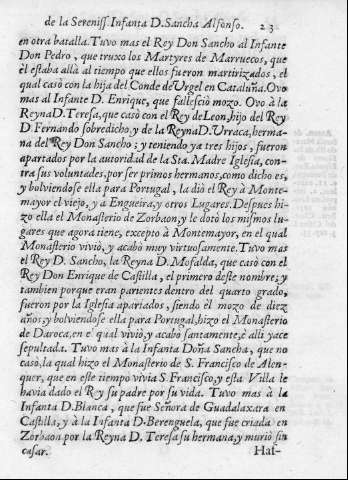 de la Sereniss. Infanta D. Sancha Alfonso. 23
en otra batalla. Tuvo mas el Rey Don Sancho al Infante
Don Pedro, que truxo los Martyres de Marruecos, que
èl estaba allà al tiempo que ellos fueron martirizados, el
qual casò con la hija del Conde de Urgel en Cataluña. Ovo
mas al Infante D. Enrique, que fallesciò mozo. Ovo à la
Reyna D. Teresa, que casò con el Rey de Leon, hijo del Rey
D. Fernando sobredicho, y de la Reyna D. Urraca, herma-
na del Rey Don Sancho; y teniendo ya tres hijos, fueron
apartados por la autoridad de la Sta. Madre Iglesia, con-
tra sus voluntades, por ser primos hermanos, como dicho es,
y bolviendose ella para Portugal, la diò el Rey à Monte-
mayor el viejo, y à Engueira, y otros Lugares. Despues hi-
zo ella el Monasterio de Zorbaon, y le dotò los mismos lu-
gares que agora tiene, excepto à Montemayor, en el qual
Monasterio viviò, y acabò muy virtuosamente. Tuvo mas
el Rey D. Sancho, la Reyna D. Mofalda, que casò con el
Rey Don Enrique de Castilla, el primero deste nombre; y
tambien porque eran parientes dentro del quarto grado,
fueron por la Iglesia apartados, siendo èl mozo de diez
años; y bolviendose ella para Portugal, hizo el Monasterio
de Daroca, en el qual viviò, y acabò santamente, è alli yace
sepultada. Tuvo mas à la Infanta Doña Sancha, que no
casò, la qual hizo el Monasterio de S. Francisco de Alen-
quer, que en este tiempo vivia S. Francisco, y esta Villa le
havia dado el Rey su padre por su vida. Tuvo mas à la
Infanta D. Blanca, que fue Señora de Guadalaxara en
Castilla, y à la Infanta D. Berenguela, que fue criada en
Zorbaon por la Reyna D. Teresa su hermana, y muriò sin
casar. Has-